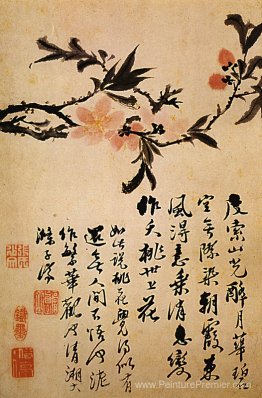 度索山光醉月華碧
空無際染朝霞東
風得意乘消息變
作夭桃世上花
如此說桃花覺得似有
還無人間不悟何泥
作繁華觀也清湘大
滌子濟
© www.PeinturePremier.com